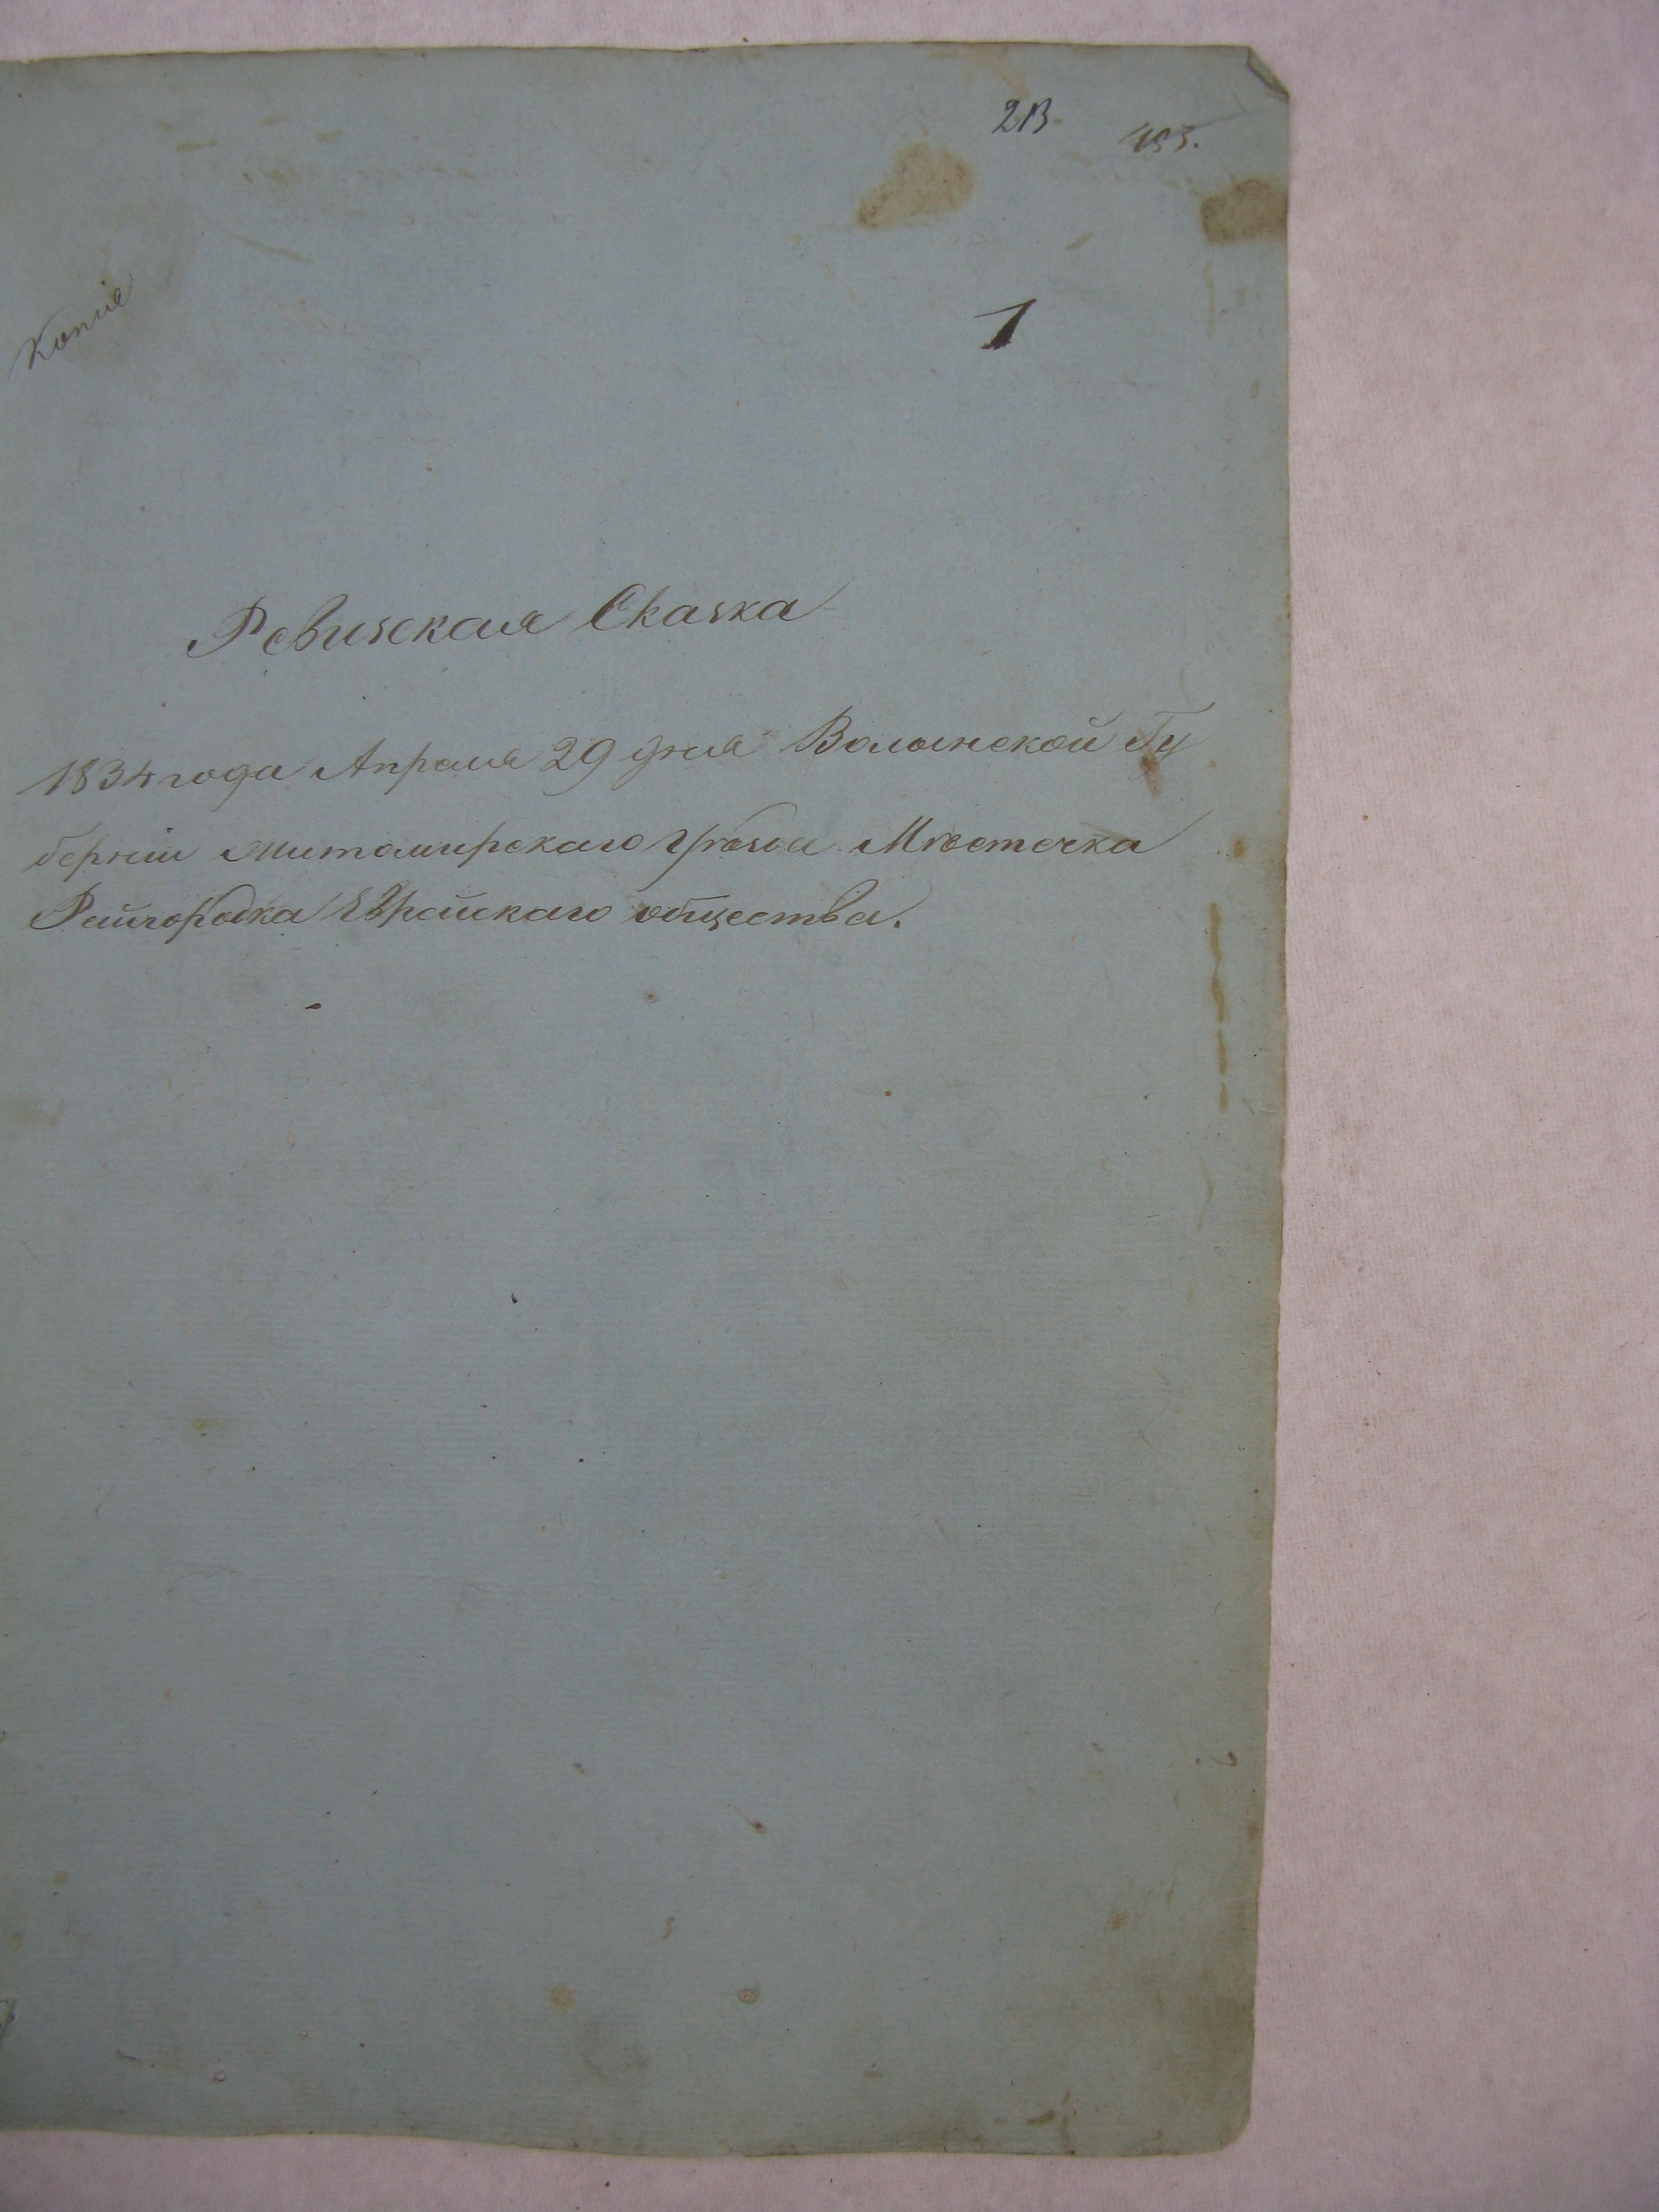 213
493.
Копія
1
Ревизская Сказка
1834 года Апреля 29 дня Волынской Гу
берніи Житомирскаго Уезда Мѣстечка
Райгородка Еврейскаго общества.